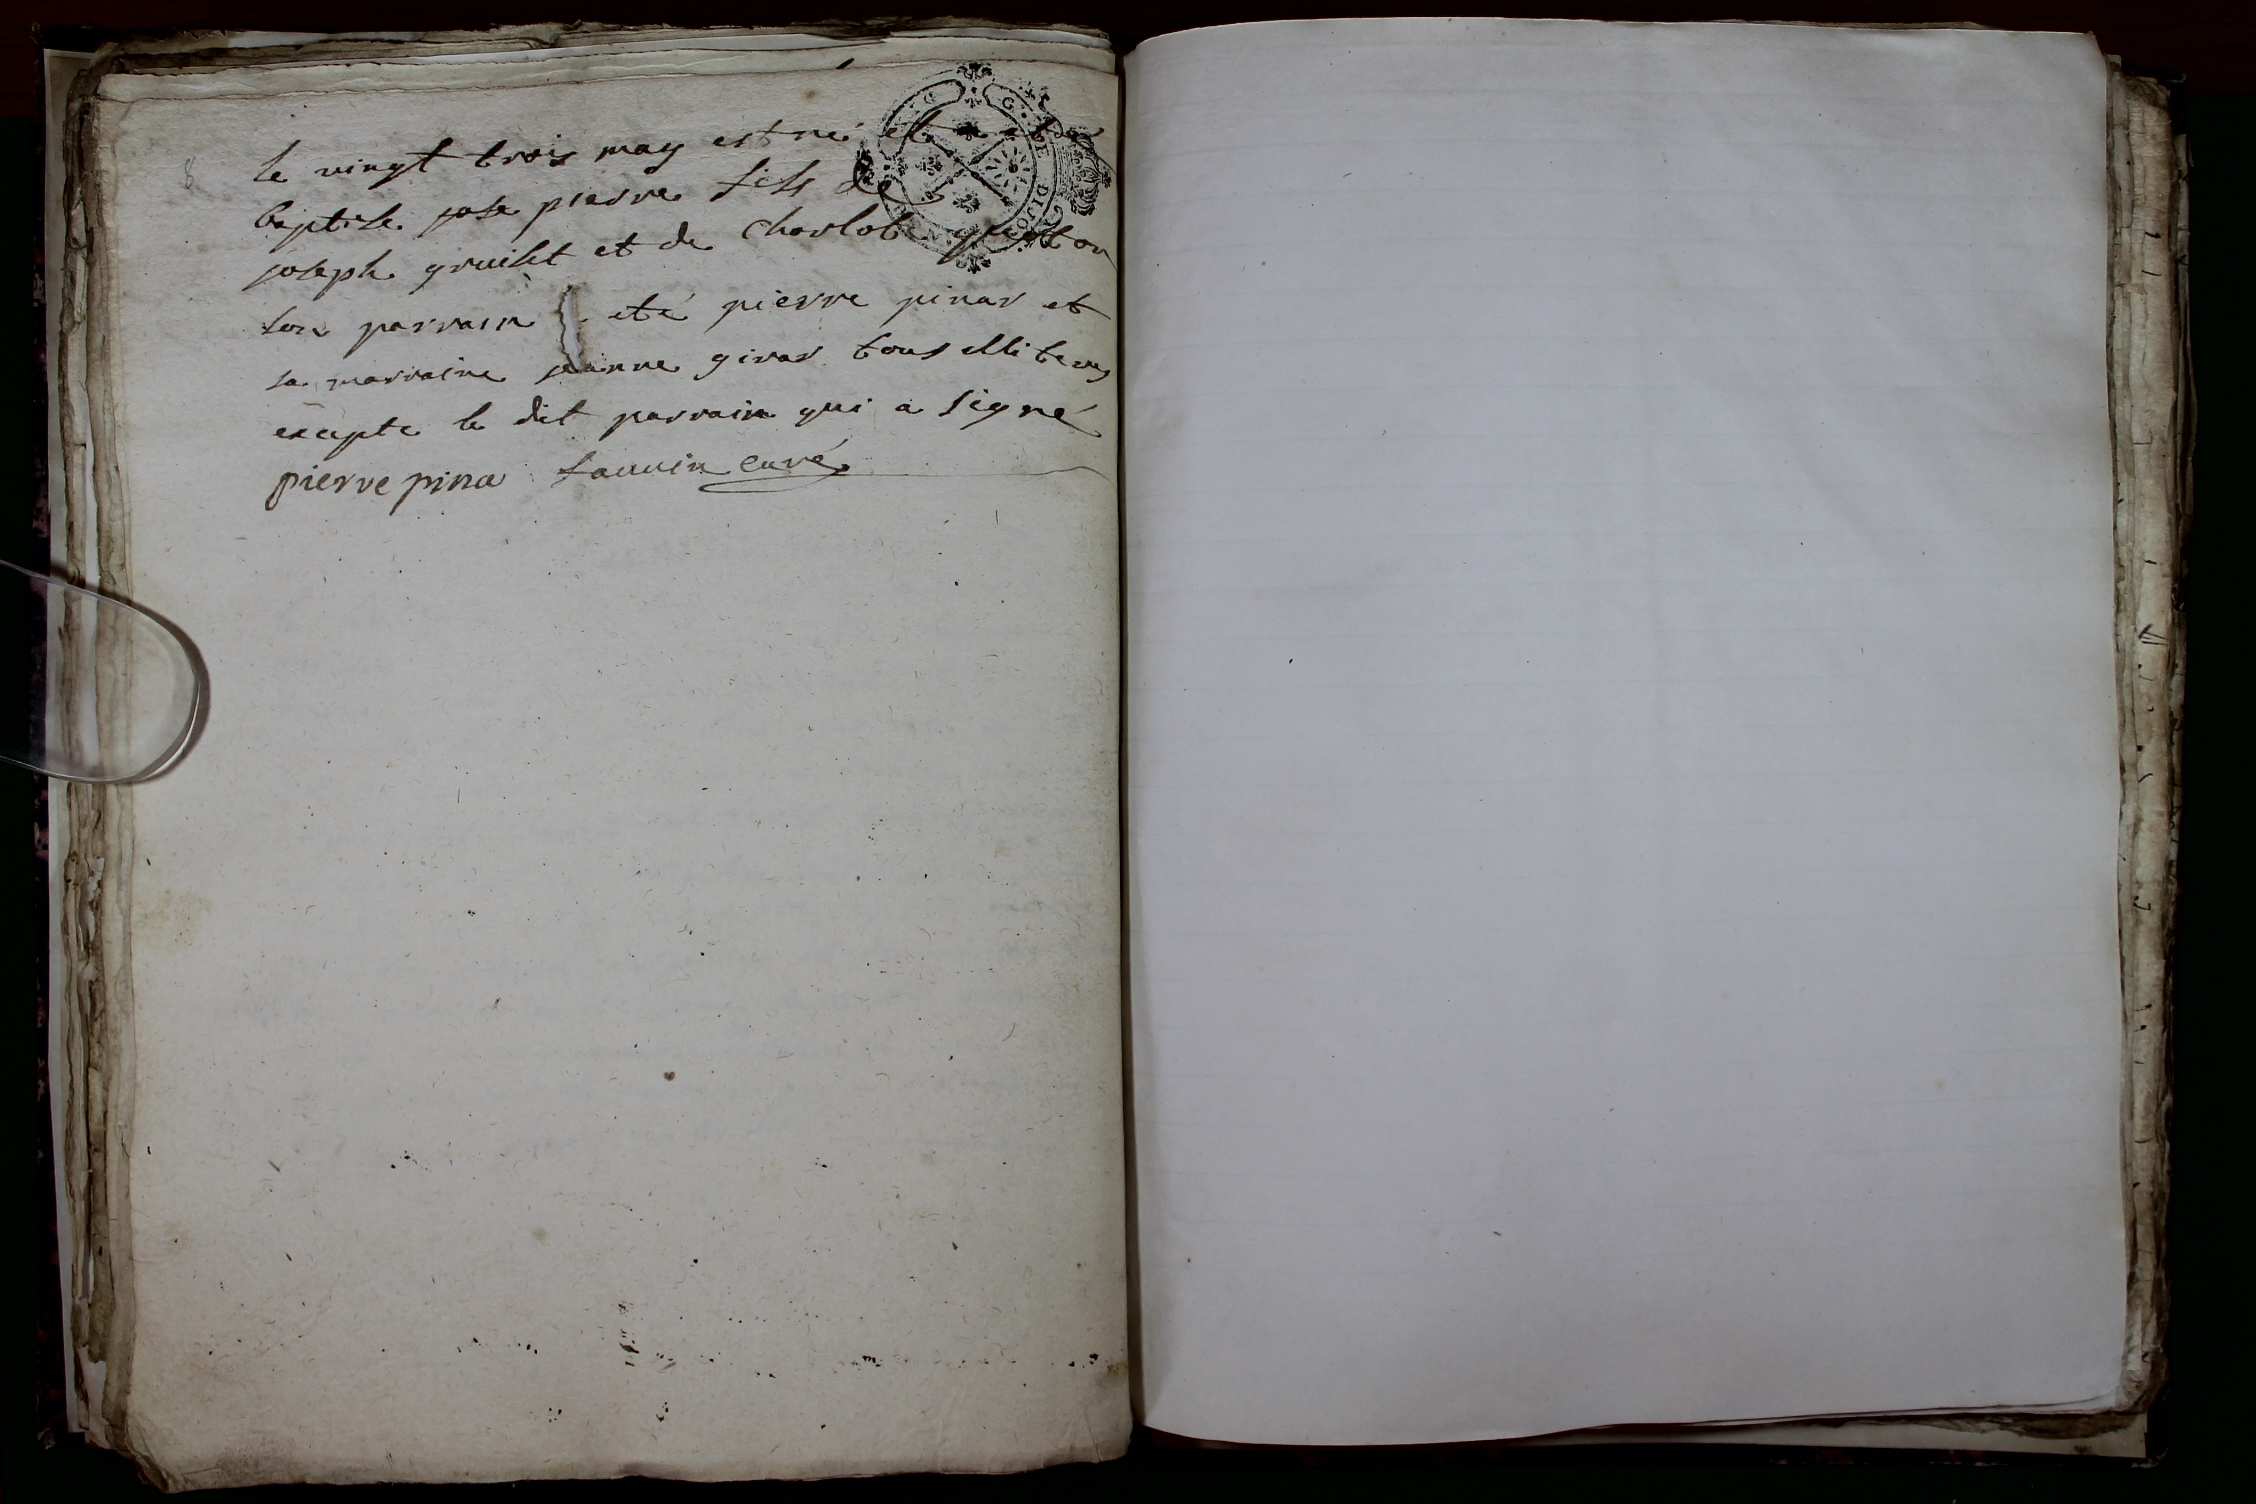 8
le vingt trois may est né et a eté
baptisé jose pierre fils de
joseph gruilet et de Charlote
son parrain eté pierre pinar et
sa marraine jeanne girar tous illiterez
exepte le dit parrain qui a signé
pierre pina Sauvin curé
G. DE DIJON